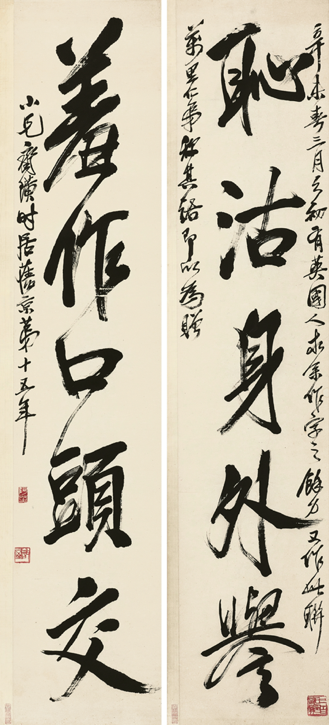 辛未春三月之初有英國人求余作字之餘力又作此聯
恥沽身外譽
萬里仁弟以為贈
羞作口頭交
小兄齋璜時居舊京第十五年